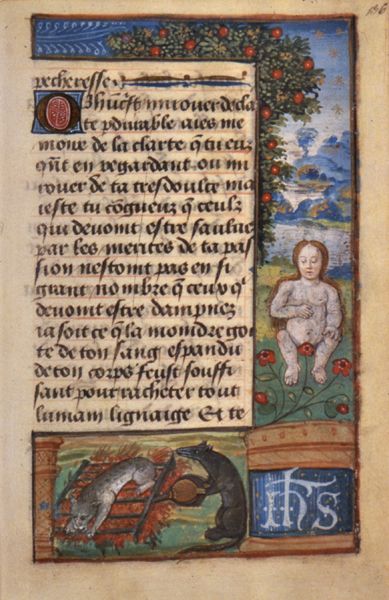 pecheresse
O Jhūcst mirouer de cla
te pdurable aies me
moire de la clarte q̄ tu euz
qn̄t en regardant ou mi
rouer de ta tresdoulce ma
ieste tu cōgneuz q̄ ceulz
qui deuoint estre saulue
par les merites de ta pas
sion nestoint pas en si
grant nombre q̄ ceux q̄
deuoint estre dampnez
ia soit ce q̄ la moindre gou
te de ton sang espandu
de ton corps feust souffi
sant pour racheter tout
lumain lignaige Et te
IHS